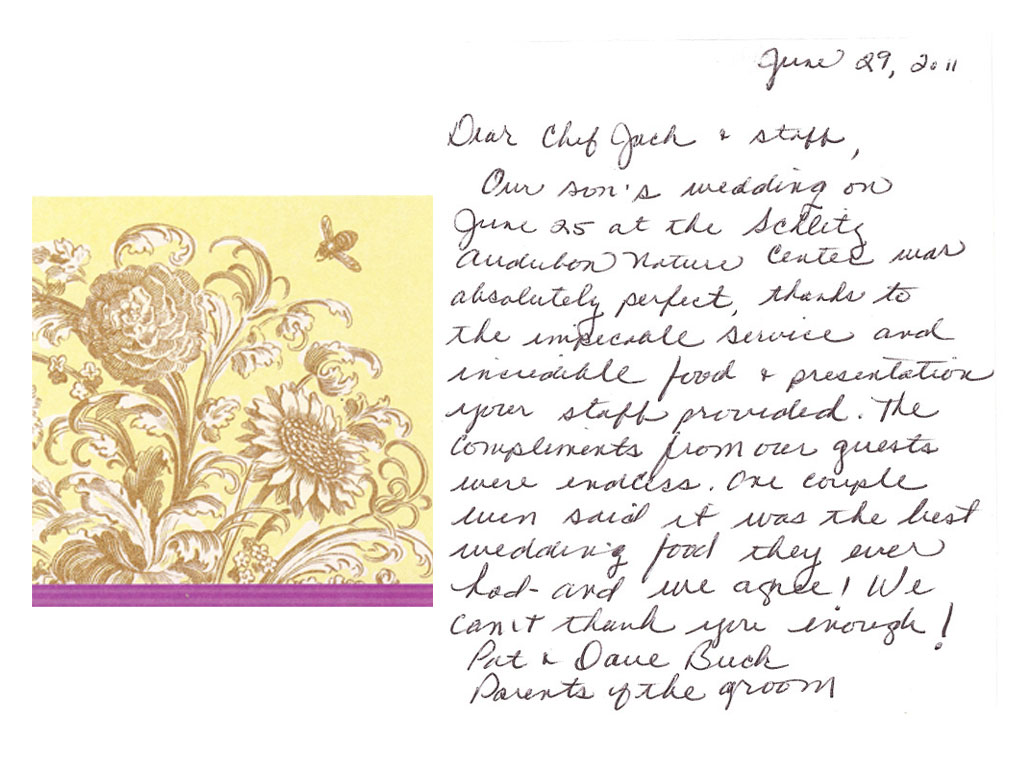 June 29, 2011
Dear Chef Jack & staff,
Our son's wedding on
June 25 at the Schlitz
Audubon Nature Center was
absolutely perfect, thanks to
the impeccable service and
incredible food & presentation
your staff provided. The
compliments from our guests
were endless. One couple
even said it was the best
wedding food they ever
had - and we agree! We
can't thank you enough!
Pat & Dave Buck
Parents of the groom